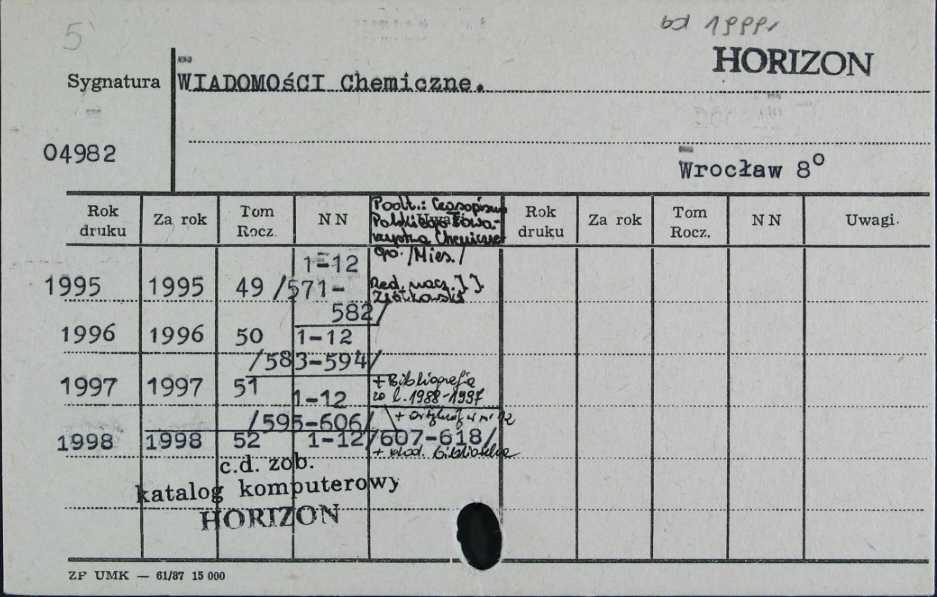 5
od 1999r
HORIZON
Sygnatura WIADOMOśCI Chemiczne.
04982
Wrocław 8°
Rok druku Za rok Tom Rocz. N N Rok druku Za rok Tom Rocz. N N Uwagi.
Podt.: Czasopismo
Polskiego Towa-
rzystwa Chemiczne-
go. /Mies./
Red. nacz. J. J.
Ziółkowski
1-12
1995 1995 49 /571-
582/
1996 1996 50 1-12
/583-594/
1997 1997 51 1-12
+ Bibliografia
za l. 1988-1997
/595-606/
+ w nr 12
1998 1998 52 1-12 /607-618/
+ wkład.
c.d. zob.
katalog komputerowy
HORIZON
ZP UMK — 61/87 15 000